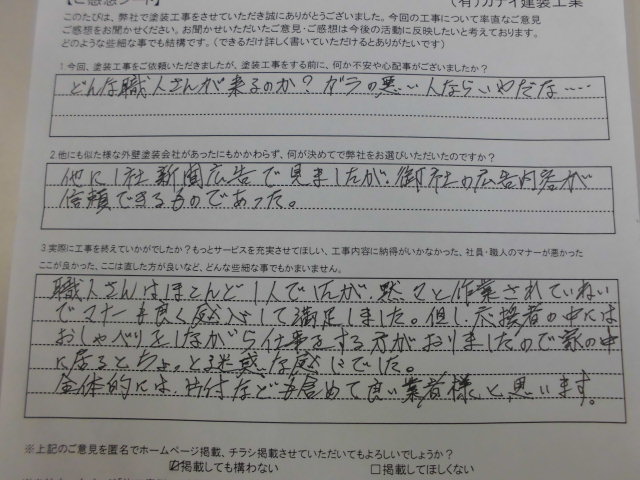 【ご感想シート】 (有)カナイ建装工業
このたびは、弊社で塗装工事をさせていただき誠にありがとうございました。今回の工事について率直なご意見
ご感想をお聞かせください。お聞かせいただいたご意見・ご感想は今後の活動に反映したいと考えております。
どのような些細な事でも結構です。（できるだけ詳しく書いていただけるとありがたいです）
1 今回、塗装工事をご依頼いただきましたが、塗装工事をする前に、何か不安や心配事がございましたか？
どんな職人さんが来るのか？ガラの悪い人ならいやだな……
2 他にも似た様な外壁塗装会社があったにもかかわらず、何が決めてで弊社をお選びいただいたのですか？
他に1社新聞広告で見ましたが、御社の広告内容が
信頼できるものであった。
3 実際に工事を終えていかがでしたか？もっとサービスを充実させてほしい、工事内容に納得がいかなかった、社員・職人のマナーが悪かった
ここが良かった、ここは直した方が良いなど、どんな些細な事でもかまいません。
職人さんはほとんど1人でしたが、黙々と作業されていねい
でマナーも良く感心して満足しました。但し、応援者の中には
おしゃべりをしながら仕事をする方がおりましたので家の中
に居るとちょっと迷惑な感じでした。
全体的には片付なども含めて良い業者様と思います。
※上記のご意見を匿名でホームページ掲載、チラシ掲載させていただいてもよろしいでしょうか？
☑掲載しても構わない □掲載してほしくない